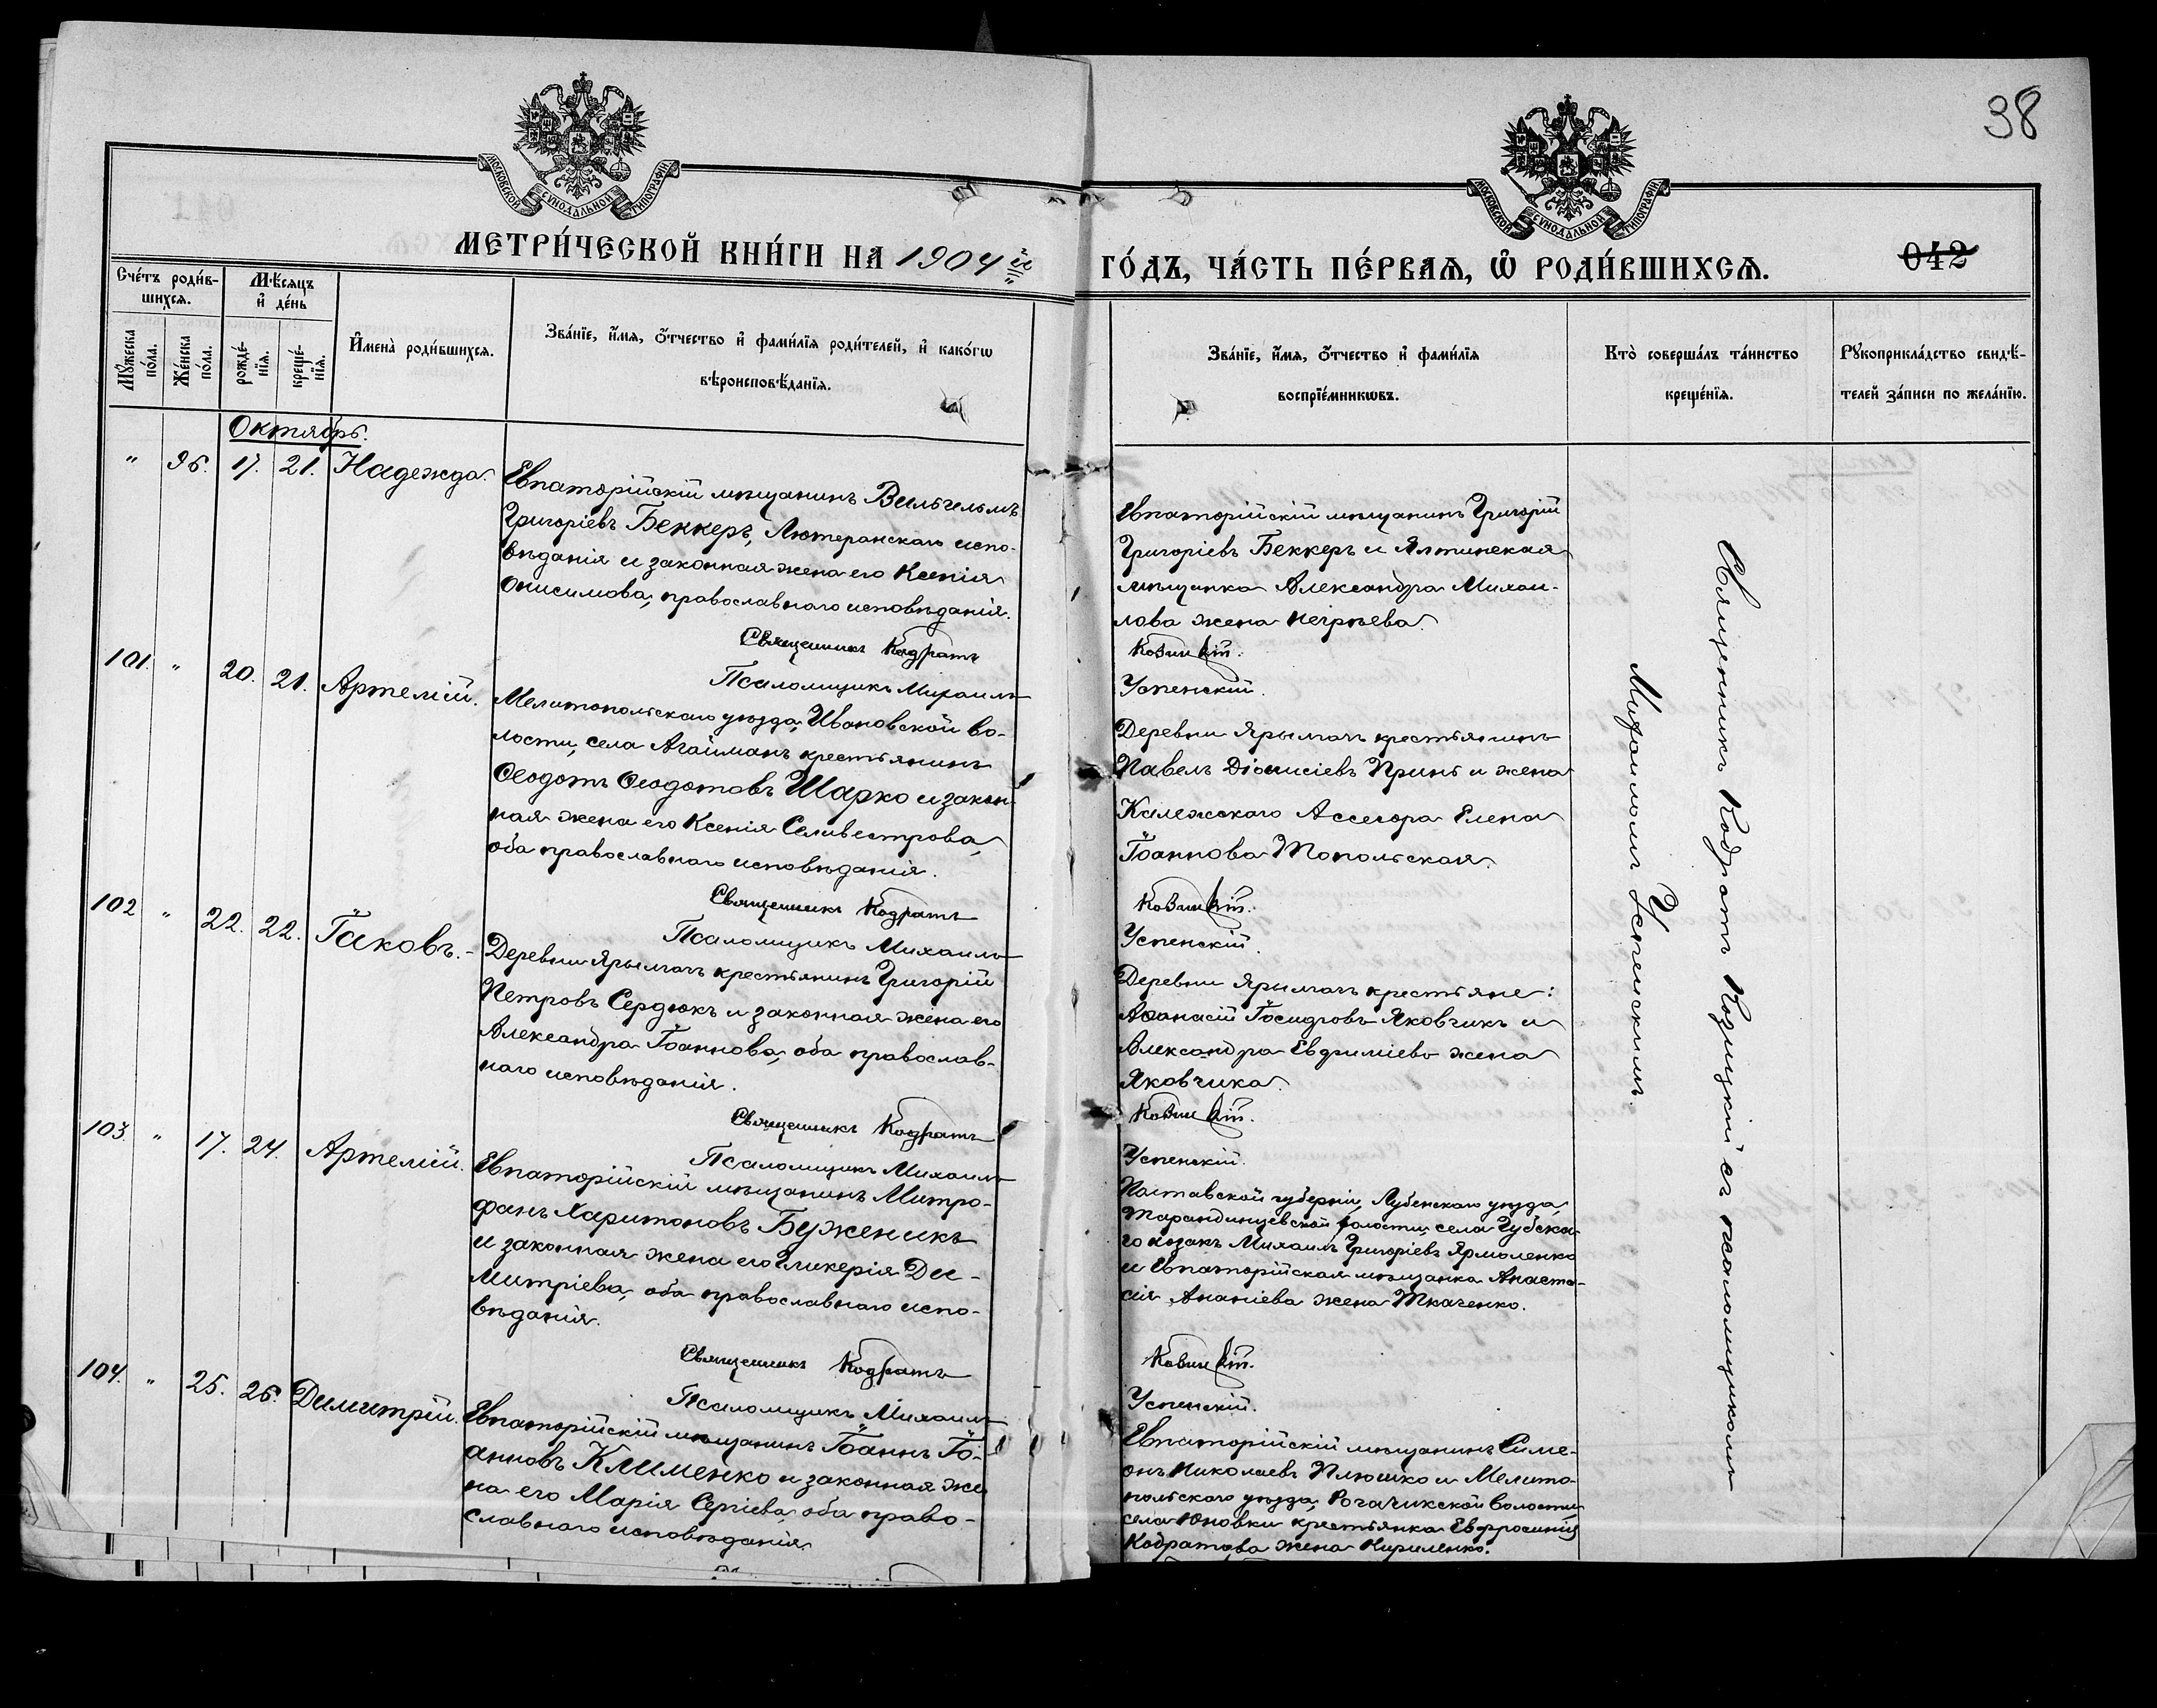 38
МОСКОВСКОЙ СУНОДАЛЬНОЙ ТИПОГРАФІИ
МОСКОВСКОЙ СУНОДАЛЬНОЙ ТИПОГРАФІИ
МЕТРИ́ЧЕСКОЙ КНИ́ГИ НА 1904й
ГО́ДЪ, ЧА́СТЬ ПЕ́РВАЯ, Ѽ РОДИ́ВШИХСѦ.
042
Сче́тъ роди́в-
шихсѧ.
Мѣ́сяцъ
и҆ де́нь
Мꙋ́жеска по́ла.
Же́нска по́ла.
рожде́-
нїѧ.
креще́-
нїѧ.
И҆мена̀ роди́вшихсѧ.
Зва́нїе, и҆́мѧ, ѻ҆́тчество и҆ фами́лїѧ роди́телей, и҆ како́гѡ
вѣроисповѣ́данїѧ.
Зва́нїе, и҆́мѧ, ѻ҆́тчество и҆ фами́лїѧ
воспрїе́мникѡвъ.
Кто̀ соверша́лъ та́инство
креще́нїѧ.
Рꙋкоприкла́дство свидѣ́-
телей за́писи по жела́нїю.
Октябрь.
" 96. 17. 21. Надежда.
Евпаторійскій мѣщанинъ Вильгельмъ
Григоріевъ Беккеръ, Лютеранскаго испо-
вѣданія и законная жена его Ксенія
Онисимова, православнаго исповѣданія.
Священникъ Кодратъ
Псаломщикъ Михаилъ
Евпаторійскій мѣщанинъ Григорій
Григоріевъ Беккеръ и Ялтинская
мѣщанка Александра Михаи-
лова жена
Успенскій.
101. " 20. 21. Артемій.
Мелитопольскаго уѣзда, Ивановской во-
лости, села Агайманъ крестьянинъ
Ѳеодотъ Ѳеодотовъ Шарко и закон-
ная жена его Ксенія Селивестрова,
оба православнаго исповѣданія.
Священникъ Кодратъ
Псаломщикъ Михаилъ
Деревни Ярылгачъ крестьянинъ
Павелъ Діонисіевъ Принь и жена
Калежскаго Ассесора Елена
Іоаннова Топольская.
Успенскій.
102 " 22. 22. Іаковъ.
Деревни Ярылгачъ крестьянинъ Григорій
Петровъ Сердюкъ и законная жена его
Александра Іоаннова, оба православ-
наго исповѣданія.
Священникъ Кодратъ
Псаломщикъ Михаилъ
Деревни Ярылгачъ крестьяне:
Аѳанасій Іосифовъ Яковчикъ и
Александра Евфиміева жена
Яковчика.
Успенскій.
103. " 17. 24. Артемій.
Евпаторійскій мѣщанинъ Митро-
фанъ Харитоновъ Буженикъ
и законная жена его Гликерія Ди-
митріева, оба православнаго испо-
вѣданія.
Священникъ Кодратъ
Псаломщикъ Михаилъ
Полтавской губерніи, Лубенскаго уѣзда,
Тарандинцевской волости, села Губска-
го козакъ Михаилъ Григоріевъ Ярмоленко
и Евпаторійская мѣщанка Анаста-
сія Ананіева жена Ткаченко.
Успенскій.
104. " 25. 26. Димитрій.
Евпаторійскій мѣщанинъ Іоаннъ Іо-
анновъ Клименко и законная же
на его Марія Сергіева, оба право-
славнаго исповѣданія.
Евпаторійскій мѣщанинъ Симе-
онъ Николаевъ Плюшко и Мелито-
польскаго уѣзда, Рогачикской волости,
села Юновки крестьянка Евфросинія
Кодратова жена Кириленко.
Священникъ Кодратъ Козицкій съ псаломщикомъ
Михаиломъ Успенскимъ.